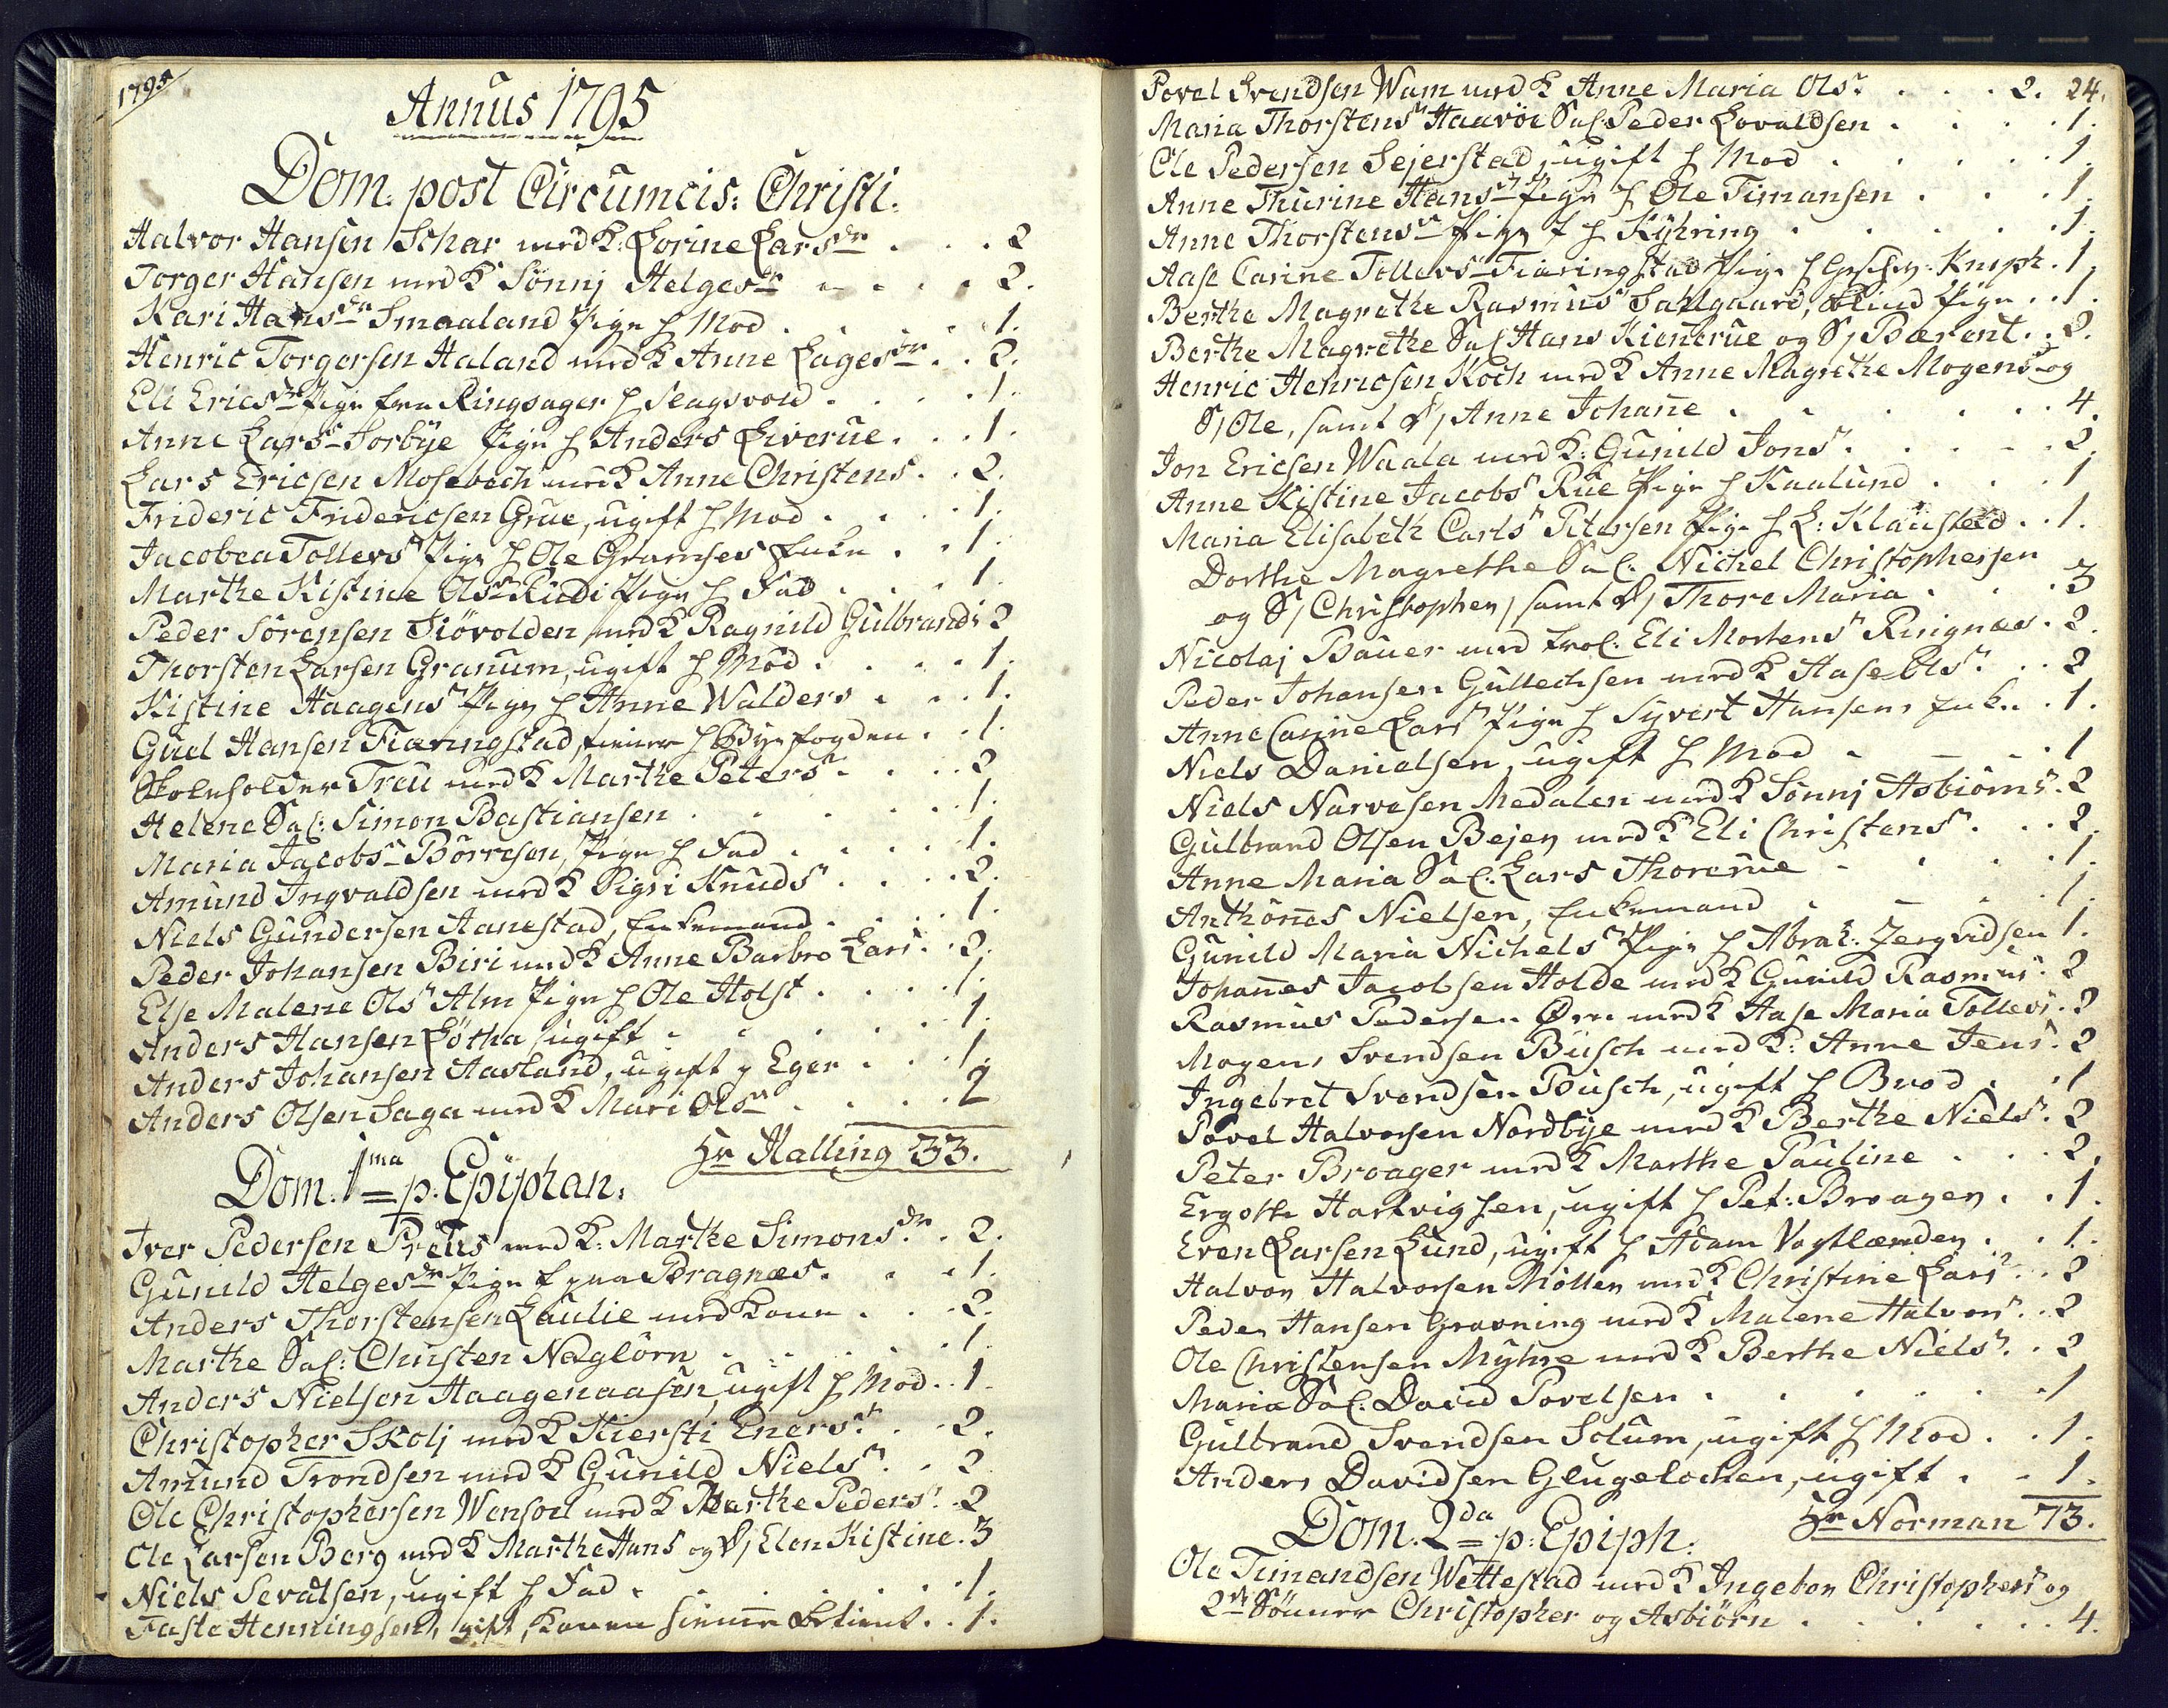 1795
Annus 1795
Dom. post Circumcis: Christi.
Halvor Hansen Schar med K: Lorine Larsdr . . . 2
Torger Hansen med K Sönnj Helgesdr . . . . 2.
Kari Hansdr Smaaland Pige h Mod . . . . 1.
Henric Torgersen Haland med K Anne Lagesdr . . 2.
Eli Ericsdr Pige fra Ringsager h Slagsvold . . . . 1.
Anne Larsr Sorbye Pige h Anders Liverue . . . 1.
Lars Ericsen Mosebech med K Anne Christens . . 2.
Frideric Fridericsen Grue, ugift h Mod . . . . 1.
Jacobea Tollersr Pige h Ole Gramses Enke . . 1.
Marthe Kistine Olsr Rudi Pige h Fad . . . . 1
Peder Sörensen Siövolden med K Ragnild Gulbrands 2
Thorsten Larsen Granum, ugift h Mod . . . . 1.
Kistine Haagensr Pige h Anne Walders . . . 1.
Gud Hansen Fieringstad, tiener h Byefogden . . 1.
Skoleholder Treu med K Marthe Petersr . . . . 2
Helene Sal: Simon Bastiansen . . . . . 1.
Maria Jacobsr Börresen, Pige h Fad . . . . 1.
Amund Ingvaldsen med K Sigri Knudsr . . . . 2.
Niels Gundersen Aanestad, Enkemand . . . . 1.
Peder Johansen Biri med K Anne Barbro Lars . . 2.
Else Malene Olsr Alm Pige h Ole Holst . . . . 1.
Anders Hansen Lötha ugift . . . . . 1.
Anders Johansen Aasland, ugift p Eger . . . 1.
Anders Olsen Saga med K Mari Olsr . . . . 2
Hr Halling 33.
Dom. 1ma p. Epiphan:
Iver Pedersen Prëus med K: Marthe Simonsdr . . 2.
Gunild Helgesdr Pige fra Bragnæs . . . 1.
Anders Thorstensen Laulie med Kone . . . 2.
Marthe Sal: Christen Neglörn . . . . 1.
Anders Nielsen Haagenaasen, ugift h Mod . . 1.
Christopher Skolj med K Kiersti Enersr . . 2.
Amund Trondsen med K Gunild Nielsr . . 2
Ole Christophersen Wensoel med K Marthe Pedersr . 2
Ole Larsen Berg med K Marthe Hans og D/ Elen Kistine . 3
Niels Sevatsen, ugift h Fad . . . . . . 1.
Faste Henningsen, gift, Konen siemre betient . . 1.
Povel Svendsen Wam med K Anne Maria Olsr . . . 2. 24.
Maria Thorstensr Haavöe Sal: Peder Lovaldsen . . . . 1.
Ole Pedersen Sejerstad, ugift h Mod . . . . . 1.
Anne Thurine Hansr Pige h Ole Timansen . . . 1.
Anne Thorstensr Pige h Kyhring . . . . . 1.
Aase Carine Tollevsr Fiæringstad Pige h Kniph . 1.
Berthe Magrethe Rasmusr Sahlgaard, Blind Pige . . 1.
Berthe Magrethe Sal Hans Kienerue og S/ Bærent . . 2.
Henric Henricsen Koch med K Anne Magrethe Mogensr og
S/ Ole, samt D/ Anne Johane . . . . . . 4.
Jon Ericsen Waala med K: Gunild Jonsr . . . . . 2.
Anne Kistine Jacobsr Rue Pige h Kaalund . . . 1
Maria Elisabeth Carlsr Petersen Pige h L: Klausted . . 1.
Dorthe Magrethe Sal: Nichel Christophersen
og S/ Christopher, samt D/ Thore Maria . . . 3
Nicolaj Bauer med Frol: Eli Mortensr Ringnæs . 2.
Peder Johansen Gullechsen med K Aase Olsr . . 2
Anne Carine Larsr Pige h Syvert Hansens Enke . . 1.
Niels Danielsen, ugift h Mod . . . . 1
Niels Narvesen Medalen med K Sönnj Asbiörns . 2
Gulbrand Olsen Bejer med K Eli Christensr . . . 2.
Anne Maria Sal: Lars Thorerue . . . . . 1.
Anthönes Nielsen, Enkemand . . . . . 1.
Gunild Maria Nichelsr Pige h Abrah: Jergvidsen 1.
Johannes Jacobsen Holde med K Gunild Rasmus . 2
Rasmus Pedersen Örn med K Aase Maria Tollevs . 2
Mogens Svendsen Busch med K: Anne Jens . 2
Ingebret Svendsen Busch, ugift h Brod . . . 1
Povel Halvorsen Nordbye med K Berthe Nielsr . 2
Peter Broager med K Marthe Pauline . . . 2.
Ergott Hartvigsen, ugift h Pet: Broager . . 1.
Even Larsen Lund, ugift h Adam Vogtlænder . . 1.
Halvor Halvorsen Möller med K Christine Larsr . . 2
Peder Hansen Gravning med K Malene Halvorsr . . 2
Ole Christensen Myhre med K Berthe Nielsr . . 2
Maria Sal: David Povelsen . . . . . 1
Gulbrand Svendsen Solum, ugift h Mod . . 1.
Anders Davidsen Glugelochen, ugift . . 1.
Hr Norman 73.
Dom. 2da p: Epiph:
Ole Timandsen Wettestad med K Ingebor Christophersr og
2de Sönner Christopher og Asbiörn . . . . . . 4.